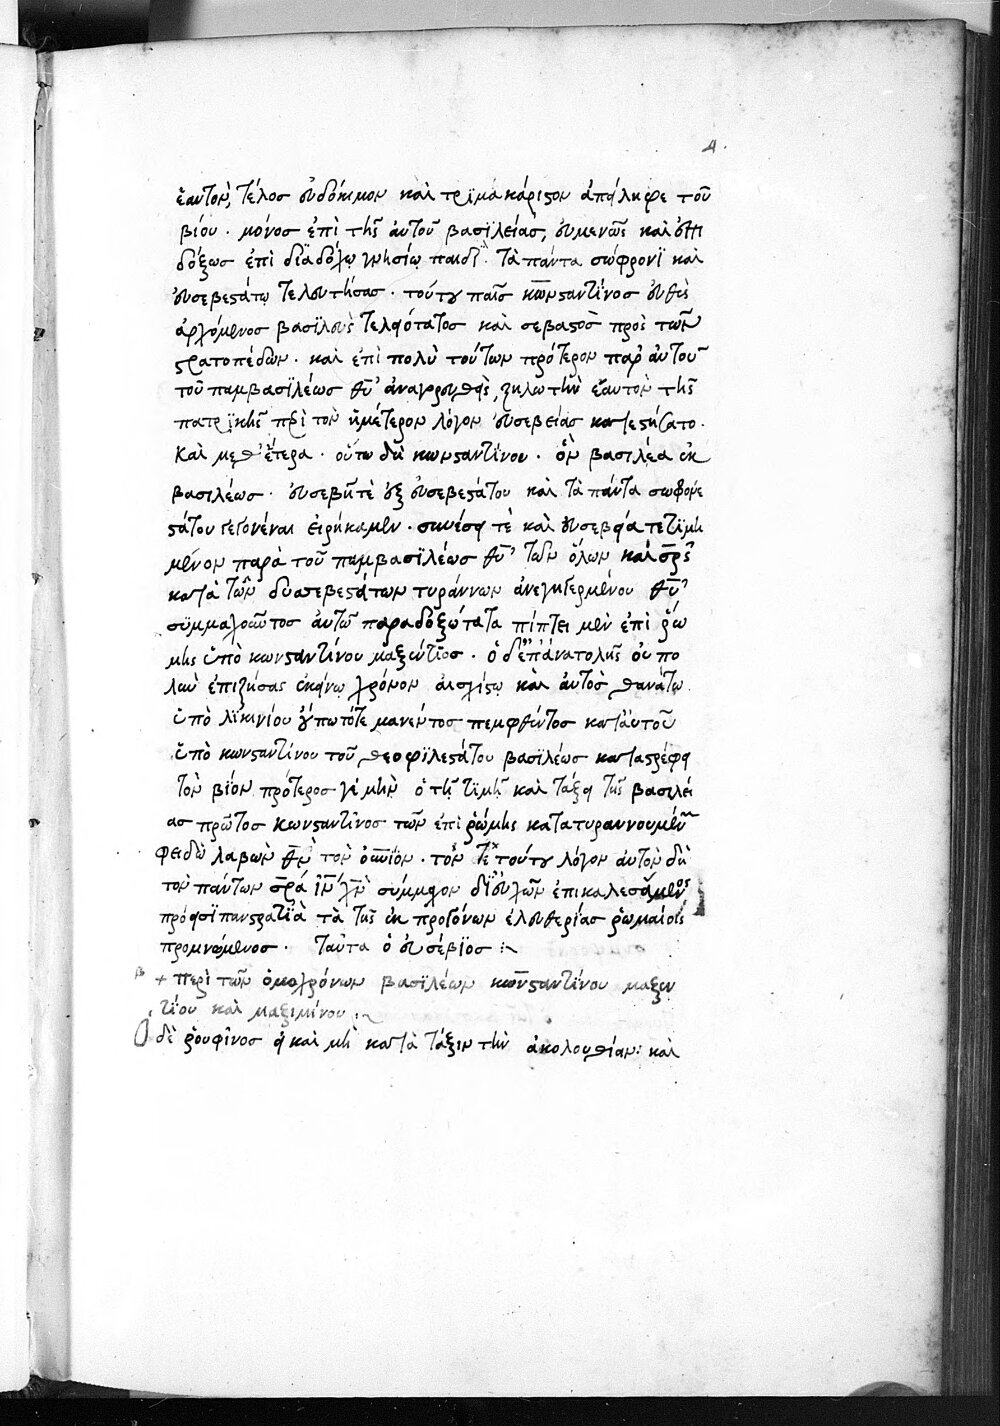 4.
ἑαυτὸν, τέλος εὐδόκιμον καὶ τρϊμακάριστον ἀπείληφε τοῦ
βίου · μόνος ἐπὶ τῆς αὐτοῦ βασϊλείας, εὐμενῶς καὶ ἐπι
δόξως ἐπὶ διαδόχῳ γνησίῳ παιδὶ · τὰ πάντα σώφρονϊ καὶ
εὐσεβεστάτῳ τελευτήσας · τούτου παῖς κωνσταντῖνος εὐθὺς
ἀρχόμενος βασϊλεὺς τελεώτατος καὶ σεβαστὸς πρὸς τῶν
στρατοπέδων · καὶ ἐπὶ πολὺ τούτων πρότερον παρ' αὐτοῦ
τοῦ παμβασϊλέως θῡ ἀναγορευθεὶς, ζηλωτὴν ἑαυτὸν τῆς
πατρϊκῆς περὶ τὸν ἡμέτερον λόγον εὐσεβείας κατεστήσατο ·
καὶ μεθ' ἕτερα · οὕτω δὴ κωνσταντίνου · ὃν βασιλέα ἐκ
βασιλέως · εὐσεβῆ τὲ ἐξ εὐσεβεστάτου καὶ τὰ πάντα σωφρονε
στάτου γεγονέναι εἰρήκαμεν · συνέσει τὲ καὶ εὐσεβείᾳ τετϊμη
μένον παρὰ τοῦ παμβασϊλέως θῡ τῶν ὅλων καὶ σρ̄ς
κατὰ τῶν δυσσεβεστάτων τυράννων ἀνεγηγερμένου θῡ
συμμαχοῦντος αὐτῶ παραδοξότατα πίπτει μὲν ἐπὶ ῥώ
μης ὑπὸ κωνσταντίνου μαξέντϊος · ὁ δ' ἐπ' ἀνατολῆς οὐ πο
λὺν ἐπιζήσας ἐκείνῳ χρόνον αἰσχίστῳ καὶ αὐτὸς θανάτῳ
ὑπὸ λϊκινίου οὔπω τότε μανέντος πεμφθέντος κατ' αὐτοῦ
ὑπὸ κωνσταντίνου τοῦ θεοφϊλεστάτου βασϊλέως καταστρέφει
τὸν βίον πρότερος γέ μὴν ὁ τῆ τϊμῆ καὶ τάξει τῆς βασιλεί
ας πρῶτος κωνσταντῖνος τῶν ἐπὶ ῥώμης κατατυραννουμένων
φειδὼ λαβὼν θν̄ τὸν οὐνῑον · τόν τε τούτου λόγον αὐτὸν δὴ
τὸν πάντων σρ̄α ῑν χ̄ν σύμμαχον δϊ' εὐχῶν ἐπικαλεσάμενος
πρόεισϊ πανστρατϊᾶ τὰ τῆς ἐκ προγόνων ἐλευθερίας ῥωμαίοις
προμνώμενος · ταῦτα ὁ εὐσέβϊος :~
β + περὶ τῶν ὁμοχρόνων βασϊλέων κωνσταντίνου μαξεν
τίου καὶ μαξιμίνου :~
Ὁ δὲ ῥουφῖνος εἰ καὶ μὴ κατὰ τάξιν τὴν ἀκολουθίαν · καὶ